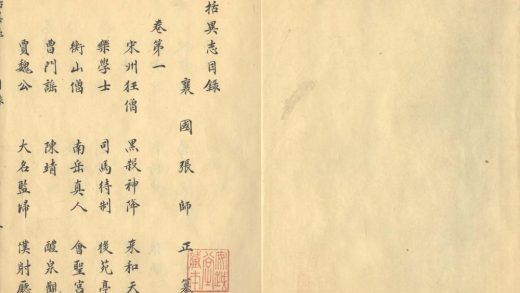 括異志目錄
襄國張師正纂
卷第一
宋州狂僧　黑殺神降　來和天
樂學士　司馬待制　後苑亭
衡山僧　南岳真人　會聖宮
曹門謠　陳靖　醴泉觀
賈魏公　大名監埽　僕射廳